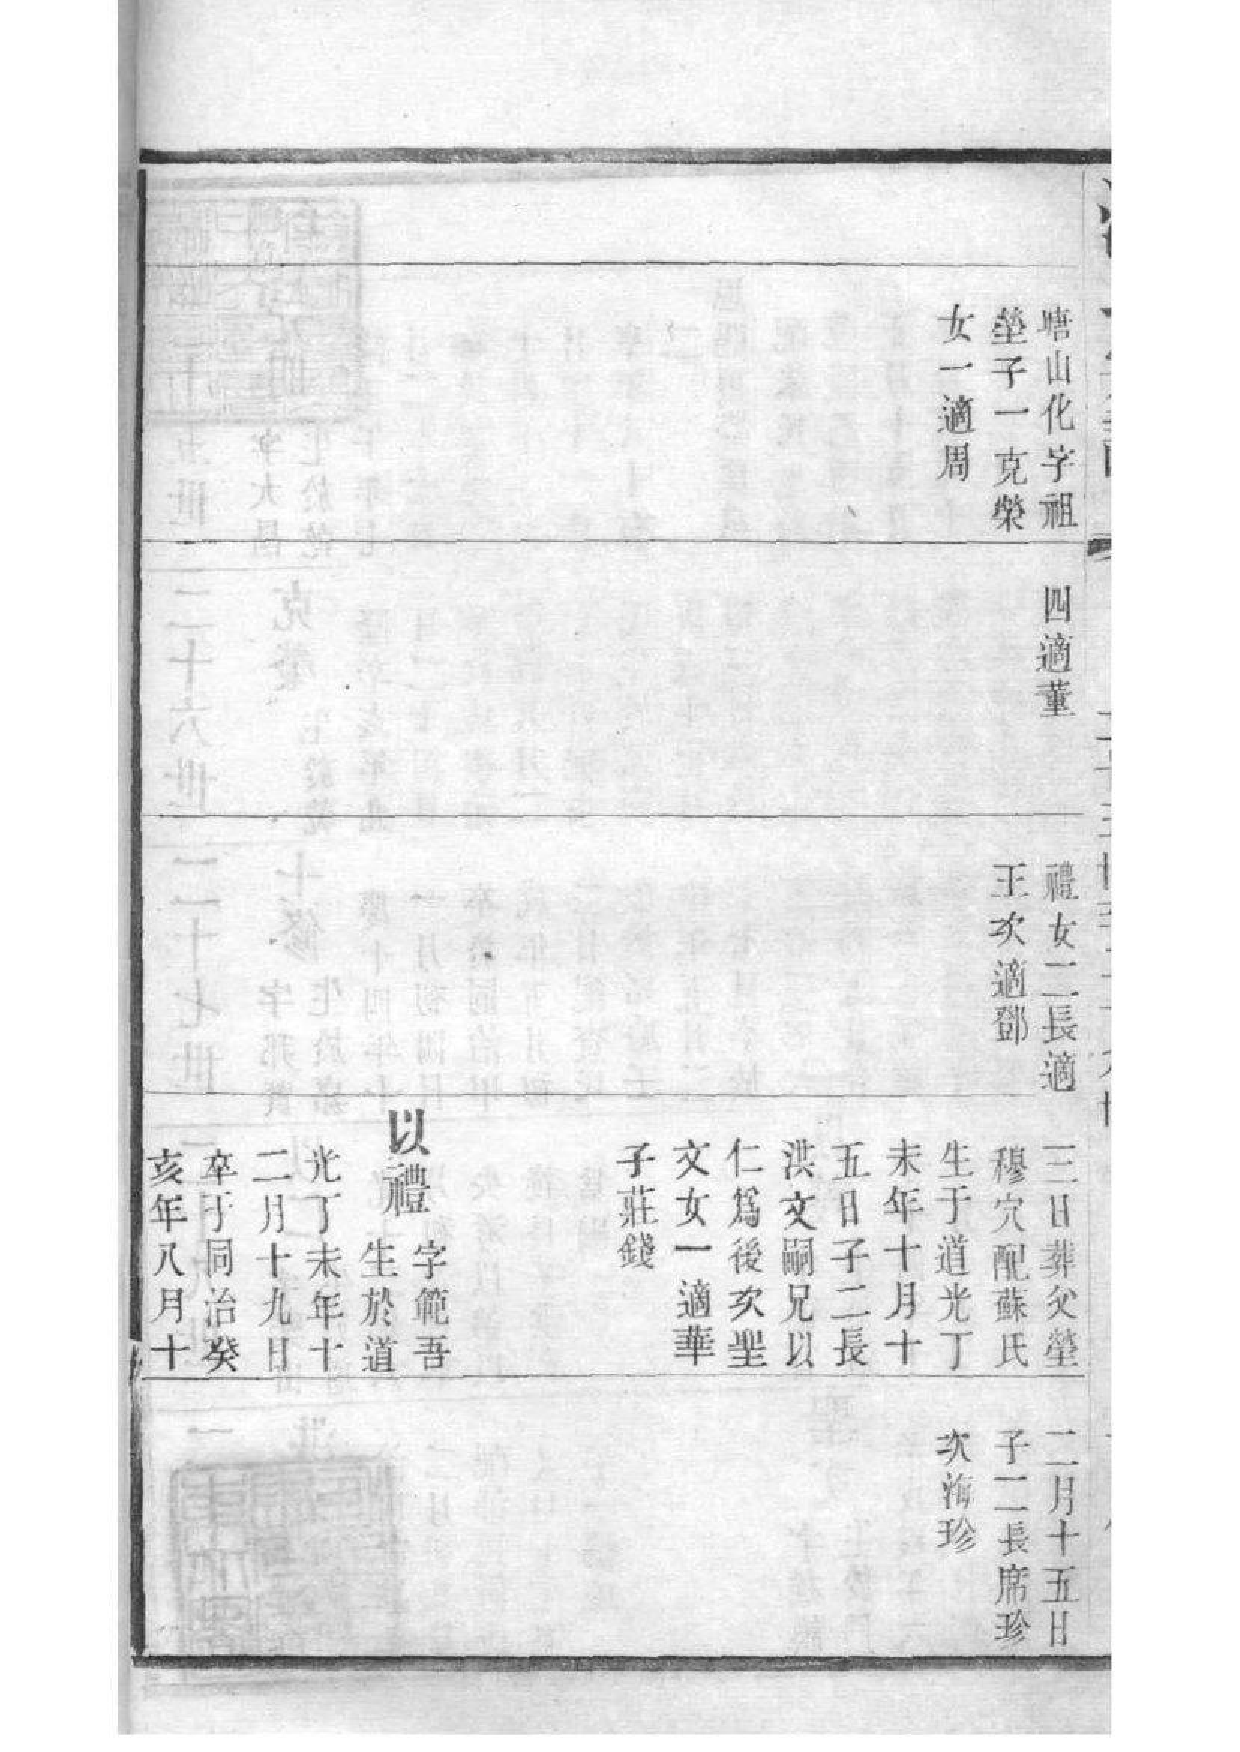 塘山化字祖
塋子一克榮
女一適周
四適董
禮女二長適
王次適鄧
三日葬父塋
穆穴配蘇氏
生于道光丁
未年十月十
五日子二長
洪文嗣兄以
仁爲後次聖
文女一適華
子莊錢
以禮 字範吾
生於道
光丁未年十
二月十九日
卒于同治癸
亥年八月十
二月十五日
子二長席珍
次海珍